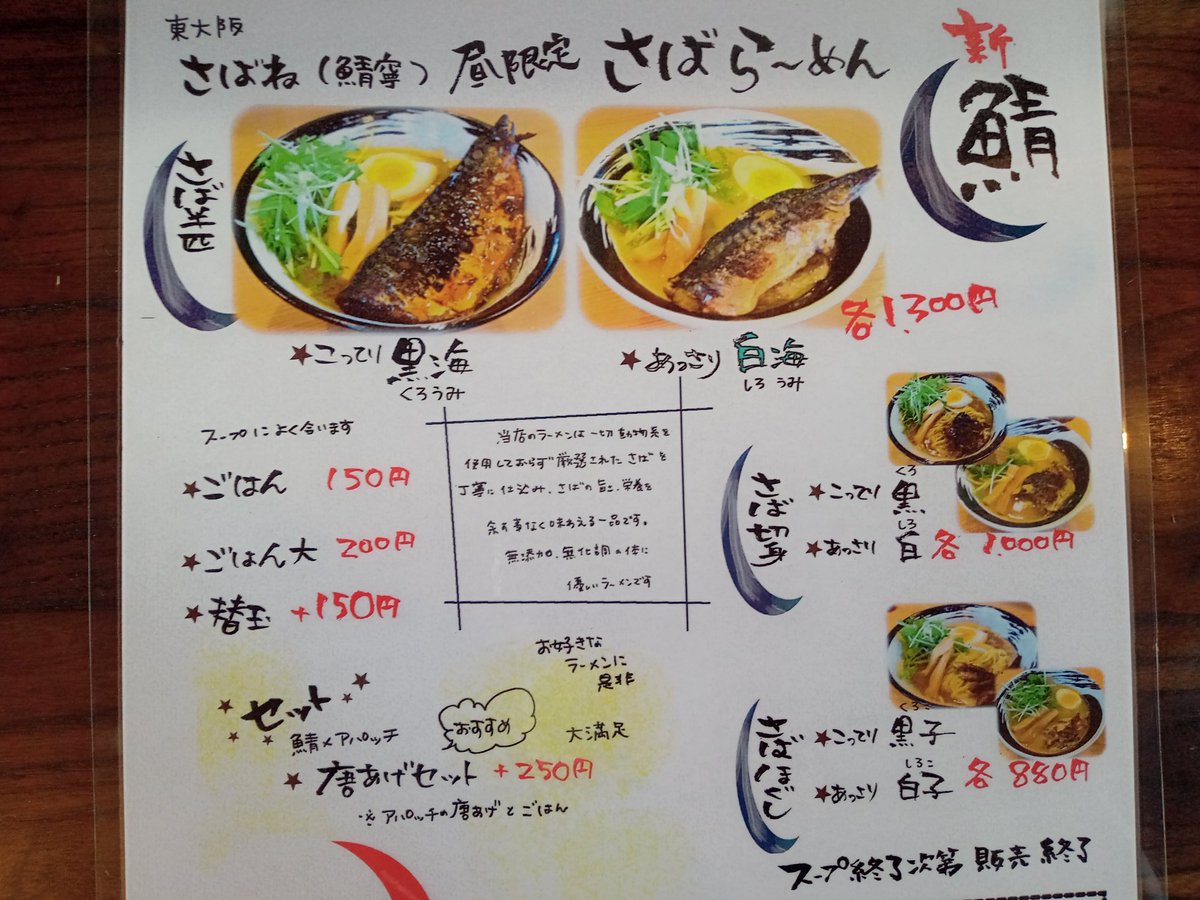 東大阪
さばね(鯖寧) 昼限定 さばら〜めん
新
鯖
さば半匹
各1,300円
★こってり 黒海
くろうみ
★あっさり 白海
しろ うみ
スープによく合います
★ごはん 150円
★ごはん大 200円
★替玉 +150円
当店のラーメンは一切動物系を
使用しておらず厳選されたさばを
丁寧に仕込み、さばの旨味、栄養を
余す事なく味わえる一品です。
無添加、無化調の体に
優しいラーメンです
さば切身
くろ
★こってり 黒
しろ
★あっさり 白 各1,000円
お好きな
ラーメンに
是非
セット
鯖×アパッチ
おすすめ
大満足
★唐あげセット +250円
※アパッチの唐あげとごはん
さばほぐし
くろこ
★こってり 黒子
しろこ
★あっさり 白子 各880円
スープ終了次第 販売終了